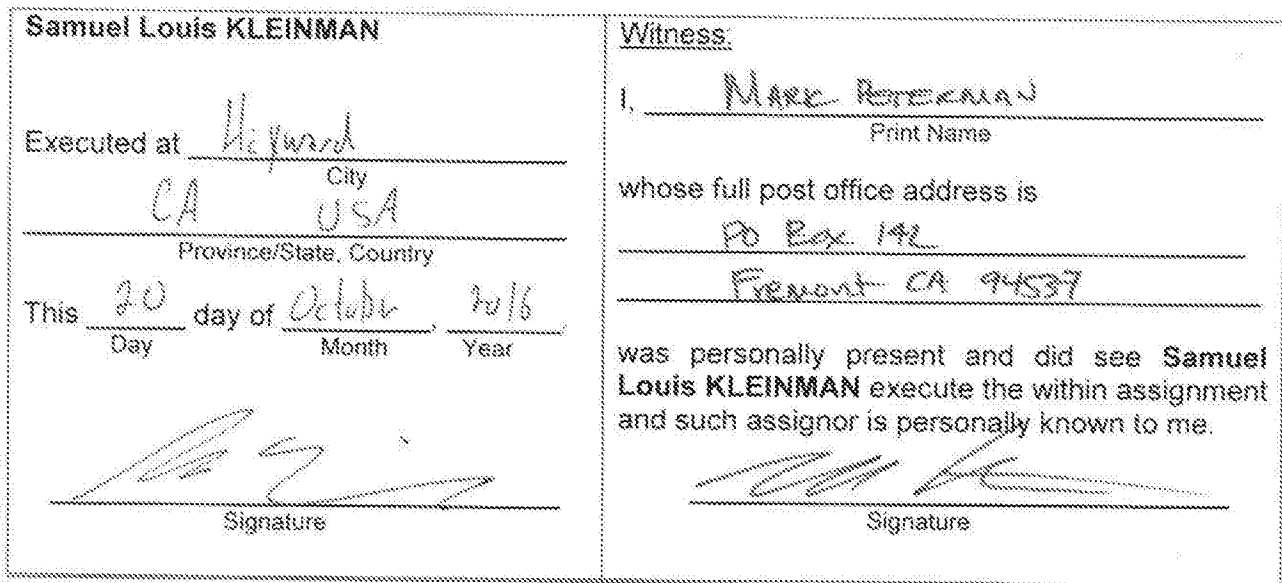 Samuel Louis KLEINMAN
Executed at Hayward
City
CA USA
Province/State, Country
This 20 day of October, 2016,
Day Month Year
Signature
Witness:
I, MARK PETERMAN
Print Name
whose full post office address is
PO Box 142
Fremont CA 94537
was personally present and did see Samuel
Louis KLEINMAN execute the within assignment
and such assignor is personally known to me.
Signature